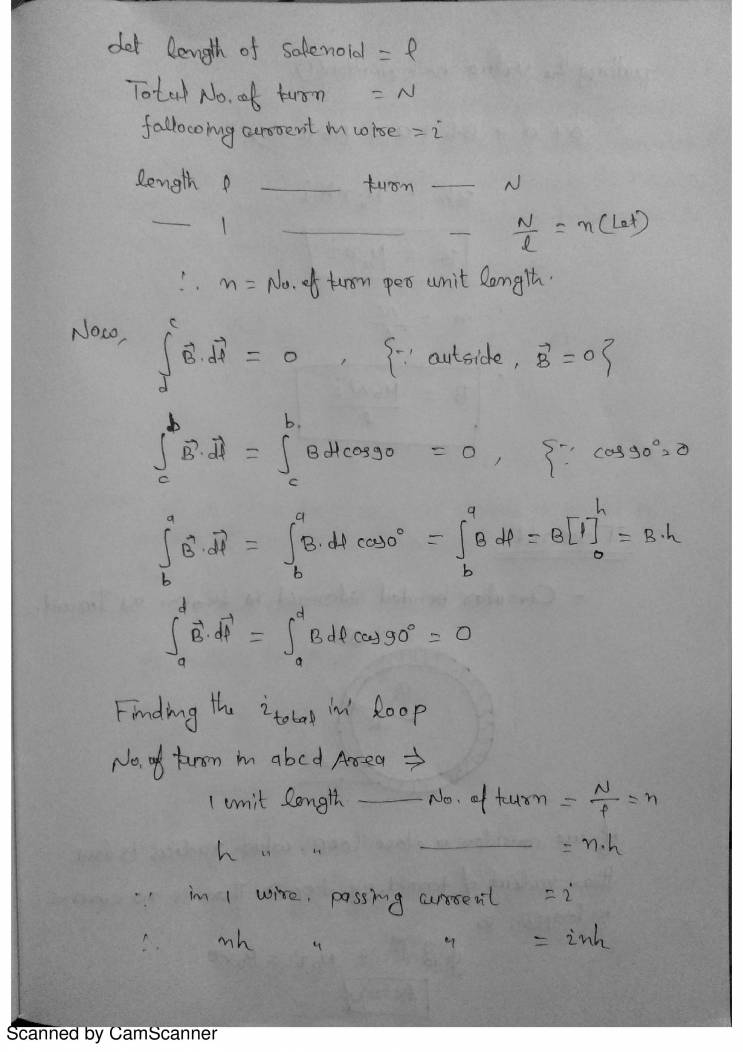 Let length of Solenoid = l
Total No. of turn = N
fallowing current in wire = i
length l —— turn — N
— 1 —— — N/l = n (Let)
∴ n = No. of turn per unit length.
Now, ∫_d^c B⃗.dl⃗ = 0 , {∵ outside, B⃗ = 0}
∫_c^b B⃗.dl⃗ = ∫_c^b B dl cos90 = 0 , {∵ cos90° = 0
∫_b^a B⃗.dl⃗ = ∫_b^a B.dl cos0° = ∫_b^a B dl = B[l]_0^h = B.h
∫_a^d B⃗.dl⃗ = ∫_a^d B dl cos90° = 0
Finding the i_total in loop
No. of turn in abcd Area ⇒
1 unit length —— No. of turn = N/l = n
h " " —— = n.h
∵ in 1 wire. passing current = i
∴ nh " " = inh
Scanned by CamScanner